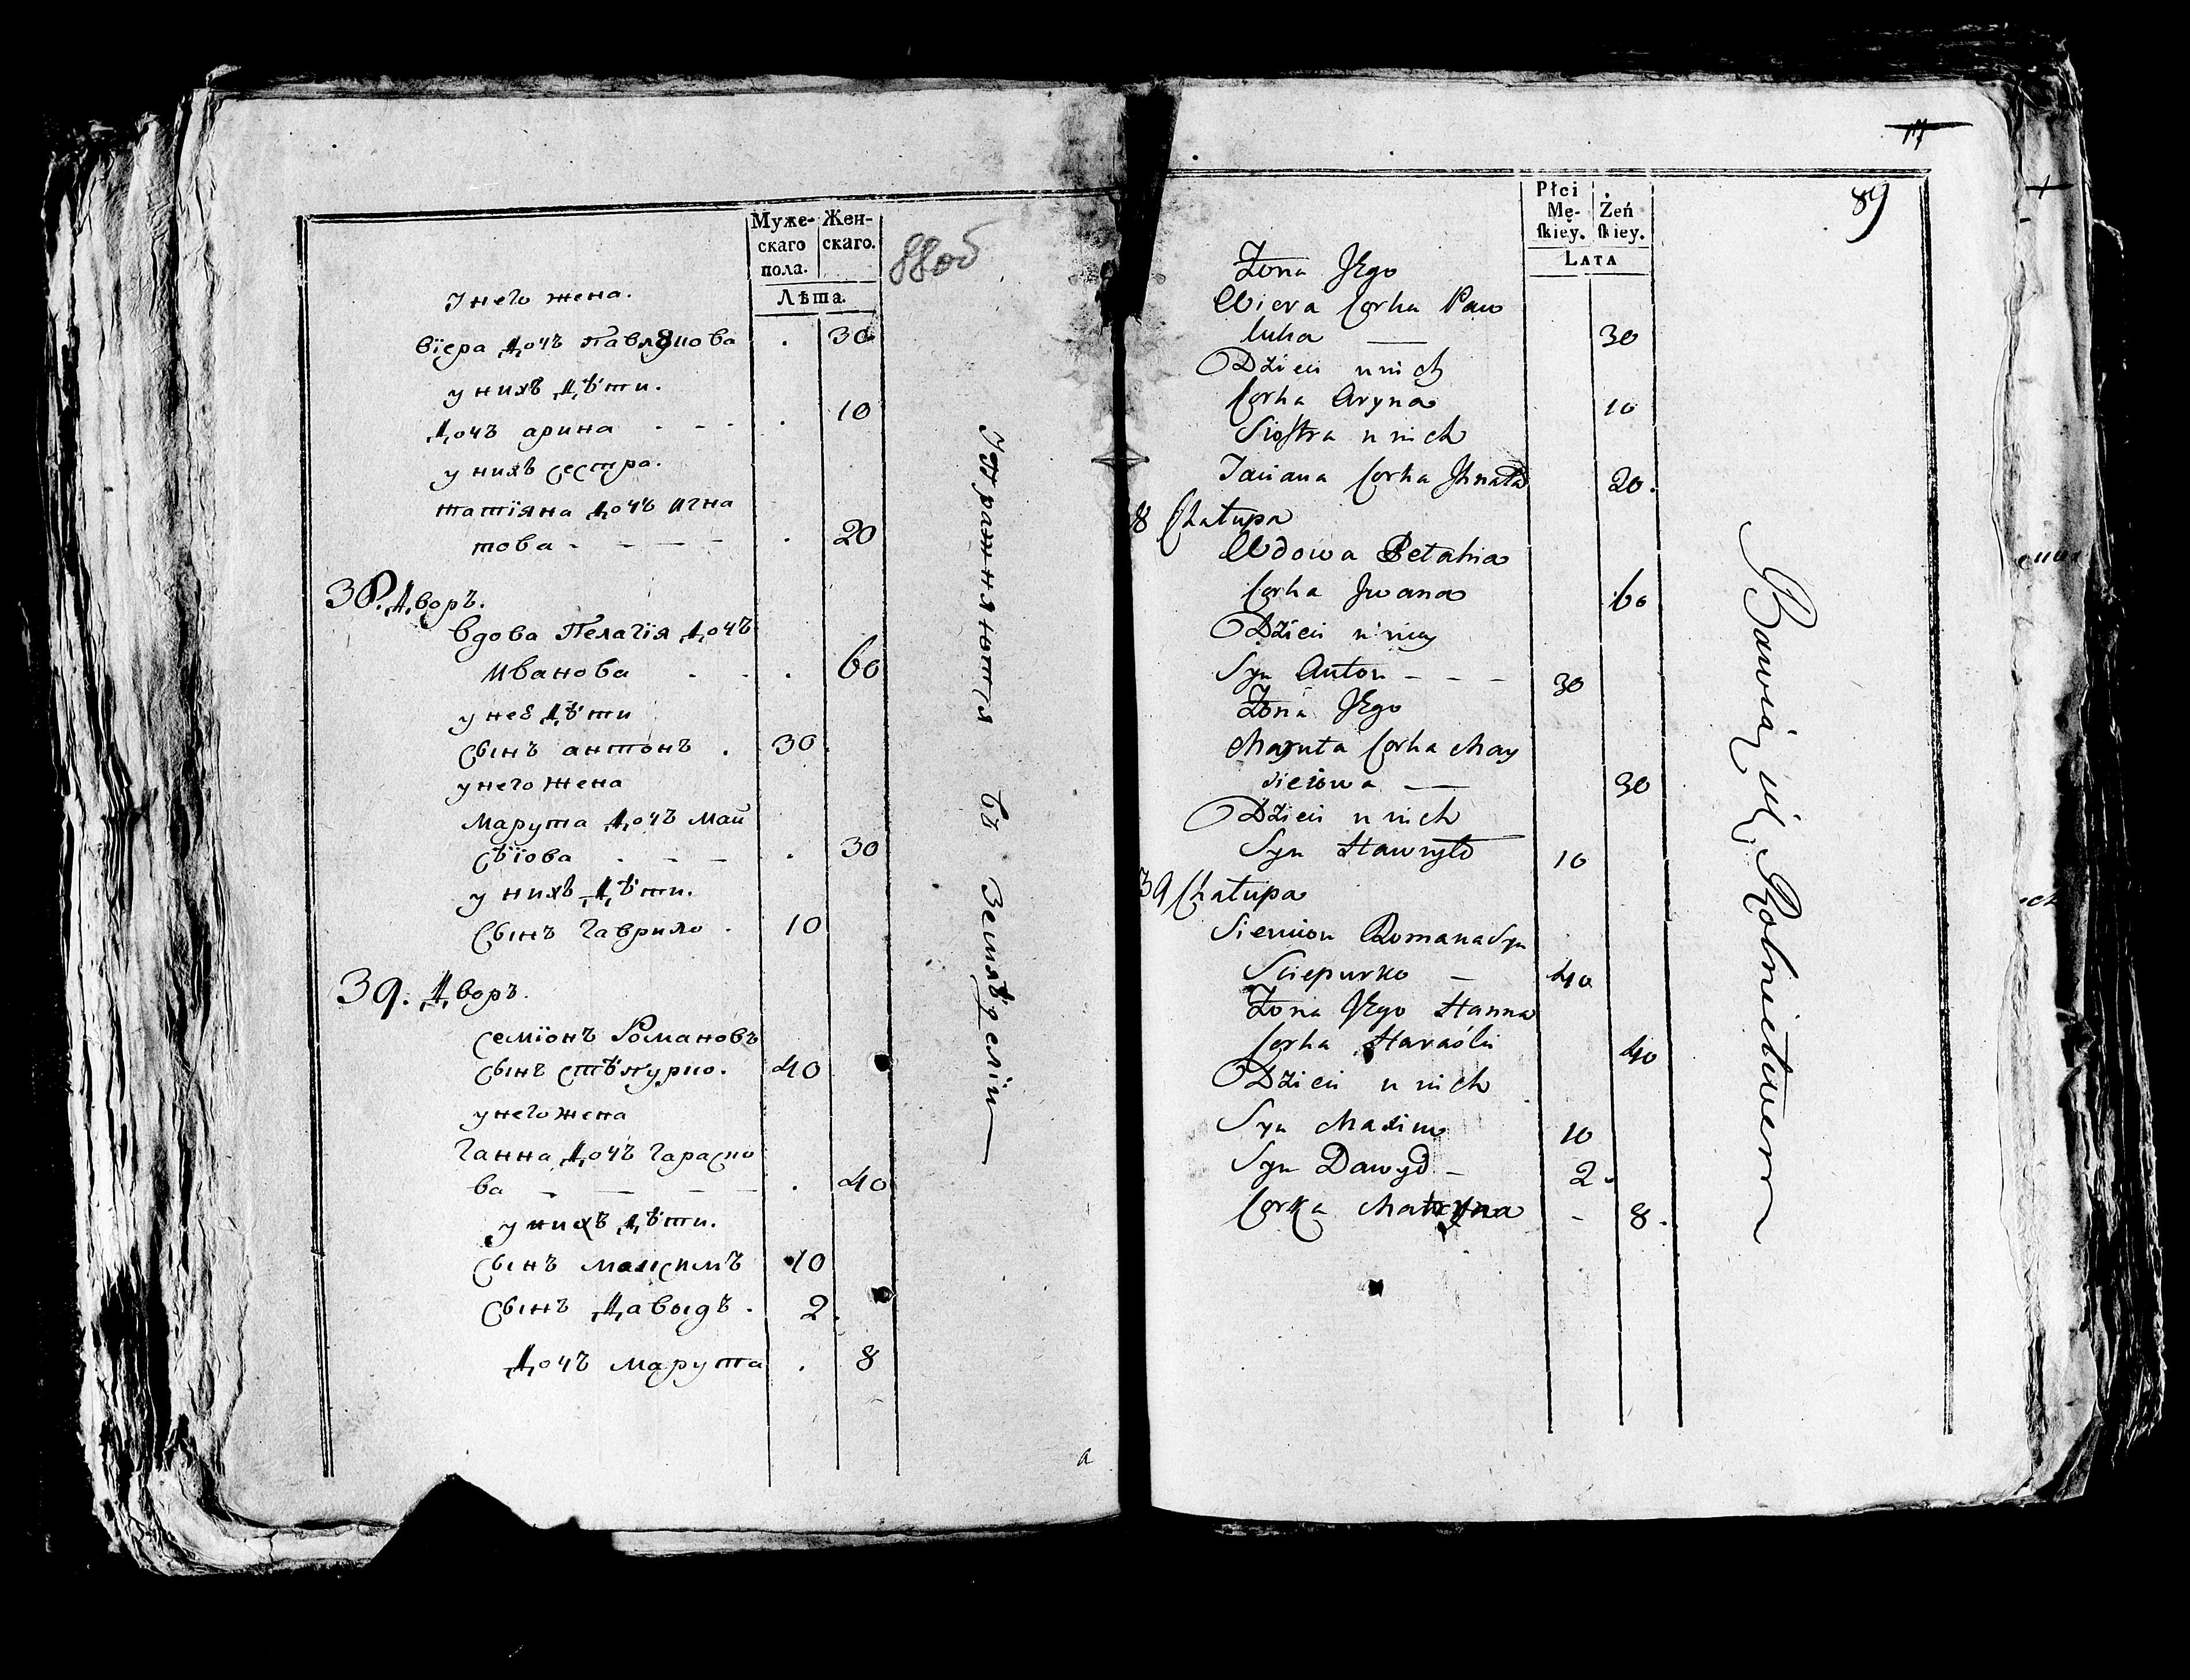 Муже- Жен-
скаго скаго.
пола.
Лѣта.
88об
Унего жена.
Віера дочъ Павлукова . 30
у нихъ дѣти.
дочъ арина - - - . 10
у нихъ сестра.
татіяна дочъ игна
това - - - - . 20
38. дворъ.
вдова Пелагія дочъ
Иванова . - . 60
у неѣ дѣти
сынъ антонъ . 30
унего жена
марута дочъ май
сѣіова . - - . 30
у нихъ дѣти.
сынъ гаврило . 10
39. дворъ.
семіонъ Романовъ
сынъ стѣпурко. 40
унего жена
ганна дочъ гараско
ва - - - - . 40
у нихъ дѣти.
сынъ максимъ 10
сынъ давыдъ . 2
дочъ марута . 8
Упражняются въ Земледеліи
17
89
Płci
Mę- Żeń
skiey. skiey.
LATA
Żona Jego
Wiera Corka Paw
luka — 30
Dzieci u nich
Corka Aryna 10
Siostra u nich
Taciana Corka Jhnata 20.
8 Chałupa
Wdowa Petahia
Corka Jwana 60
Dzieci u niey
Syn Anton - - - 30
Żona Jego
Maruta Corka May
sieiowa — 30
Dzieci u nich
Syn Hawryło 10
39 Chałupa
Siemion Romana Syn
Sciepurko - 40
Żona Jego Hanna
Corka Haraśki 40
Dzieci u nich
Syn Maxim 10
Syn Dawyd - 2.
Corka Matryna - 8.
Bawią się Rolnictwem